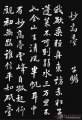 妙高臺
我欲乘飛車東訪赤松子
蓬萊不可到弱水三萬里不
如金山去清風半帆耳中
有妙高臺雲峰自孤起仰
觀初無路誰信平如砥